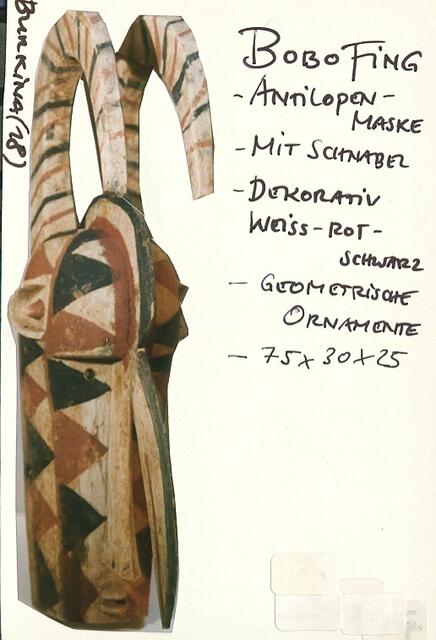 Burkina (28)
BOBO FING
- ANTILOPEN-
MASKE
- MIT SCHNABEL
- DEKORATIV
WEISS-ROT-
SCHWARZ
- GEOMETRISCHE
ORNAMENTE
- 75 x 30 x 25